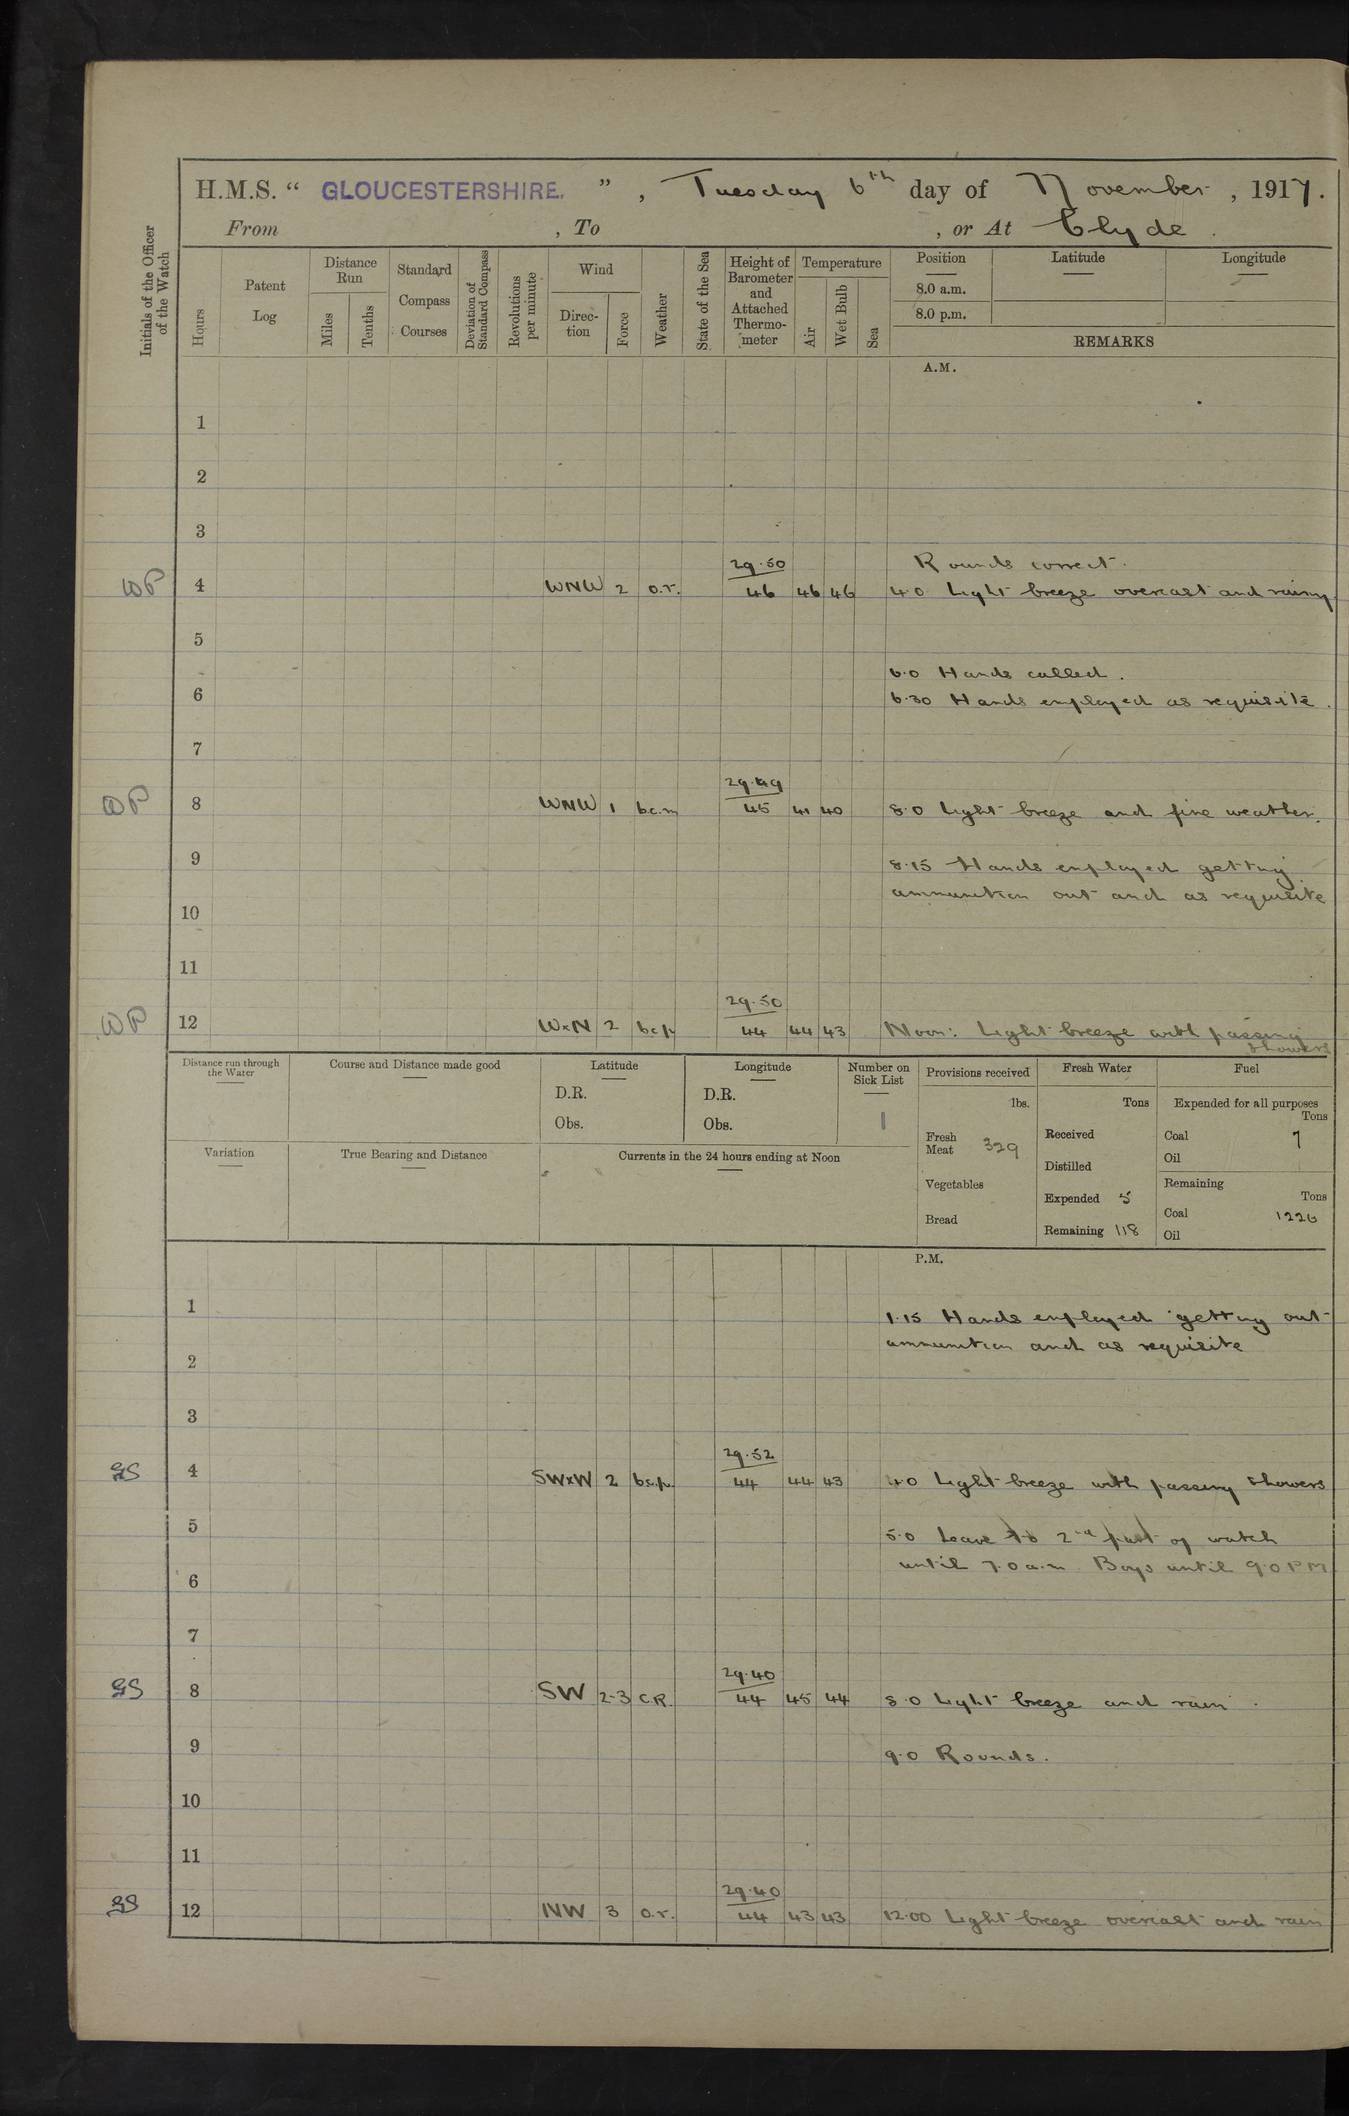 H.M.S. “ GLOUCESTERSHIRE. ” , Tuesday 6th day of November , 1917.
From , To , or At Clyde .
Initials of the Officer of the Watch
Hours
Patent Log
Distance Run
Miles
Tenths
Standard Compass Courses
Deviation of Standard Compass
Revolutions per minute
Wind
Direc-tion
Force
Weather
State of the Sea
Height of Barometer and Attached Thermo-meter
Temperature
Air
Wet Bulb
Sea
Position Latitude Longitude
8.0 a.m.
8.0 p.m.
REMARKS
A.M.
1
2
3
29.50 Rounds correct.
WP 4 WNW 2 o.r. 46 46 46 4.0 Light breeze overcast and rainy
5
6.0 Hands called.
6 6.30 Hands employed as requisite.
7
29.49
WP 8 WNW 1 b.c.m 45 41 40 8.0 Light breeze and fine weather.
9 8.15 Hands employed getting
ammunition out and as requisite
10
11
29.50
WP 12 WxN 2 bcp 44 44 43 Noon: Light breeze with passing
showers
Distance run through the Water
Course and Distance made good
Latitude
D.R.
Obs.
Longitude
D.R.
Obs.
Number on Sick List
1
Provisions received
lbs.
Fresh Meat 329
Vegetables
Bread
Fresh Water
Tons
Received
Distilled
Expended 5
Remaining 118
Fuel
Expended for all purposes
Tons
Coal 7
Oil
Remaining
Tons
Coal 1226
Oil
Variation
True Bearing and Distance
Currents in the 24 hours ending at Noon
P.M.
1 1.15 Hands employed getting out
ammunition and as requisite
2
3
29.52
GS 4 SWxW 2 b.c.p. 44 44 43 4.0 Light breeze with passing showers
5 5.0 Leave to 2nd part of watch
until 7.0 a.m. Boys until 9.0 PM
6
7
29.40
GS 8 SW 2-3 C.R. 44 45 44 8.0 Light breeze and rain.
9 9.0 Rounds.
10
11
29.40
GS 12 NW 3 o.r. 44 43 43 12.00 Light breeze overcast and rain